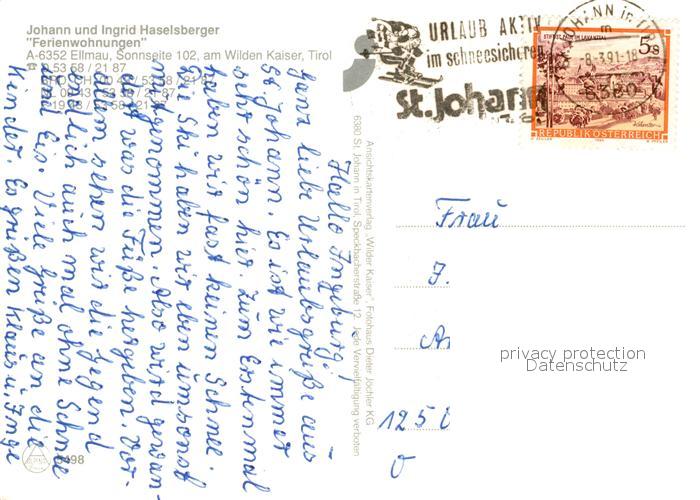 Johann und Ingrid Haselsberger
"Ferienwohnungen"
A-6352 Ellmau, Sonnseite 102, am Wilden Kaiser, Tirol
53 58 / 21 87
URLAUB AKTIV
im schneesicheren
St. Johann
ST. JOHANN IN TI
-8.3.91-18
6380
5 S
STIFT ST. PAUL IM LAVANTTAL
REPUBLIK ÖSTERREICH
Hallo Ingeburg!
Ganz liebe Urlaubsgrüße aus
St. Johann. Es ist wie immer
sehr schön hier. Zum Erstenmal
haben wir fast keinen Schnee.
Die Ski haben wir eben umsonst
mitgenommen. Also wird gewan-
dert was die Füße hergeben. Vor
allem sehen wir die Gegend
endlich auch mal ohne Schnee
und Eis. Viele Grüße an die
Kinder. Es grüßen Klaus u. Inge
Ansichtskartenverlag „Wilder Kaiser", Fotohaus Dieter Jöchler KG
6380 St. Johann in Tirol, Speckbacherstraße 12. Jede Vervielfältigung verboten
Frau
J.
A
125
privacy protection
Datenschutz
498